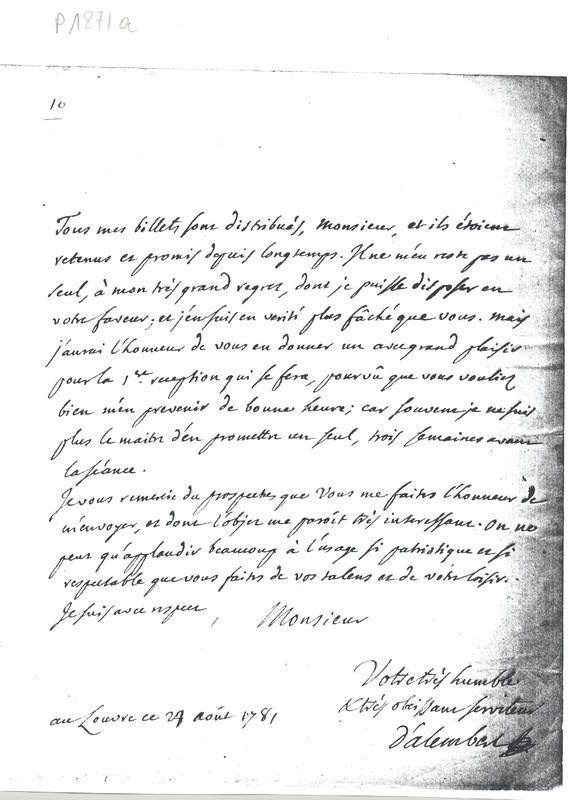 P187/a
10
Tous mes billets sont distribués, Monsieur, et ils étoient
retenus et promis depuis longtemps. Il ne m'en reste pas un
seul, à mon très grand regret, dont je puisse disposer en
votre faveur; et j'en suis en verité plus fâché que vous. Mais
j'aurai l'honneur de vous en donner un avec grand plaisir
pour la 1re. reception qui se fera, pourvû que vous vouliez
bien m'en prevenir de bonne heure; car souvent je ne suis
plus le maitre d'en promettre un seul, trois semaines avant
la séance.
Je vous remercie du prospectus que vous me faites l'honneur de
m'envoyer, et dont l'objet me paroît très interessant. On ne
peut qu'applaudir beaucoup à l'usage si patriotique et si
respectable que vous faites de vos talens et de votre loisir.
Je suis avec respect, Monsieur
Votre très humble
& très obéissant serviteur
au Louvre ce août 1781
d'alembert